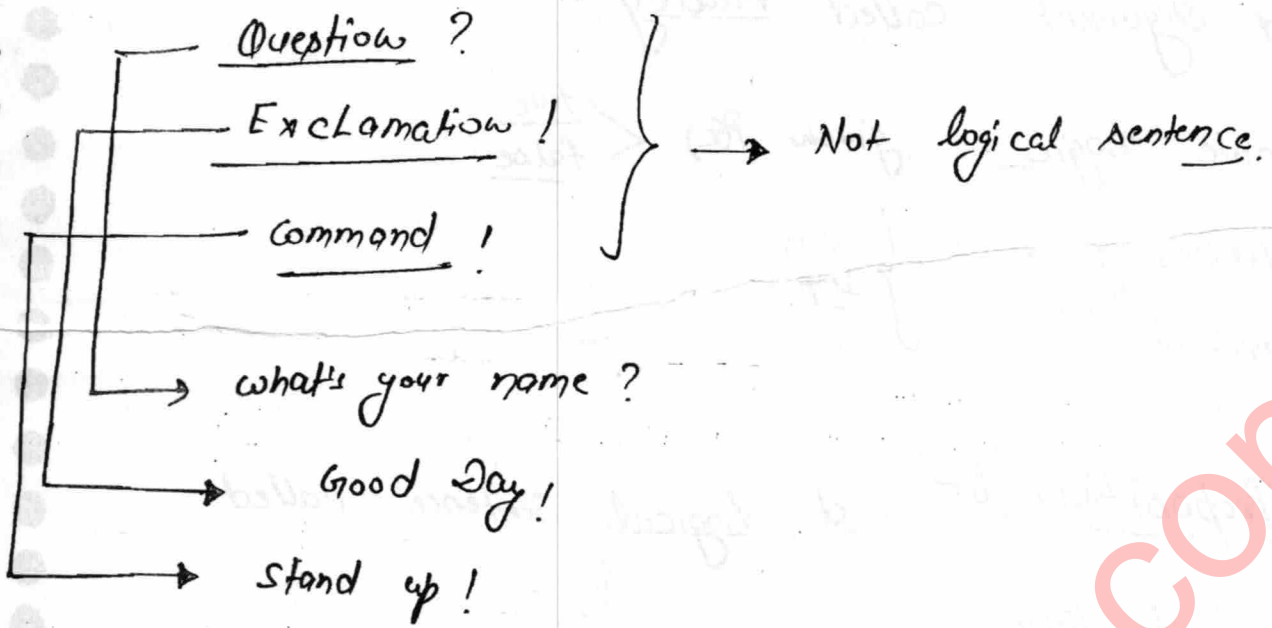 Question ?
Exclamation !
Command !
Not logical sentence.
what's your name ?
Good Day !
Stand up !
con